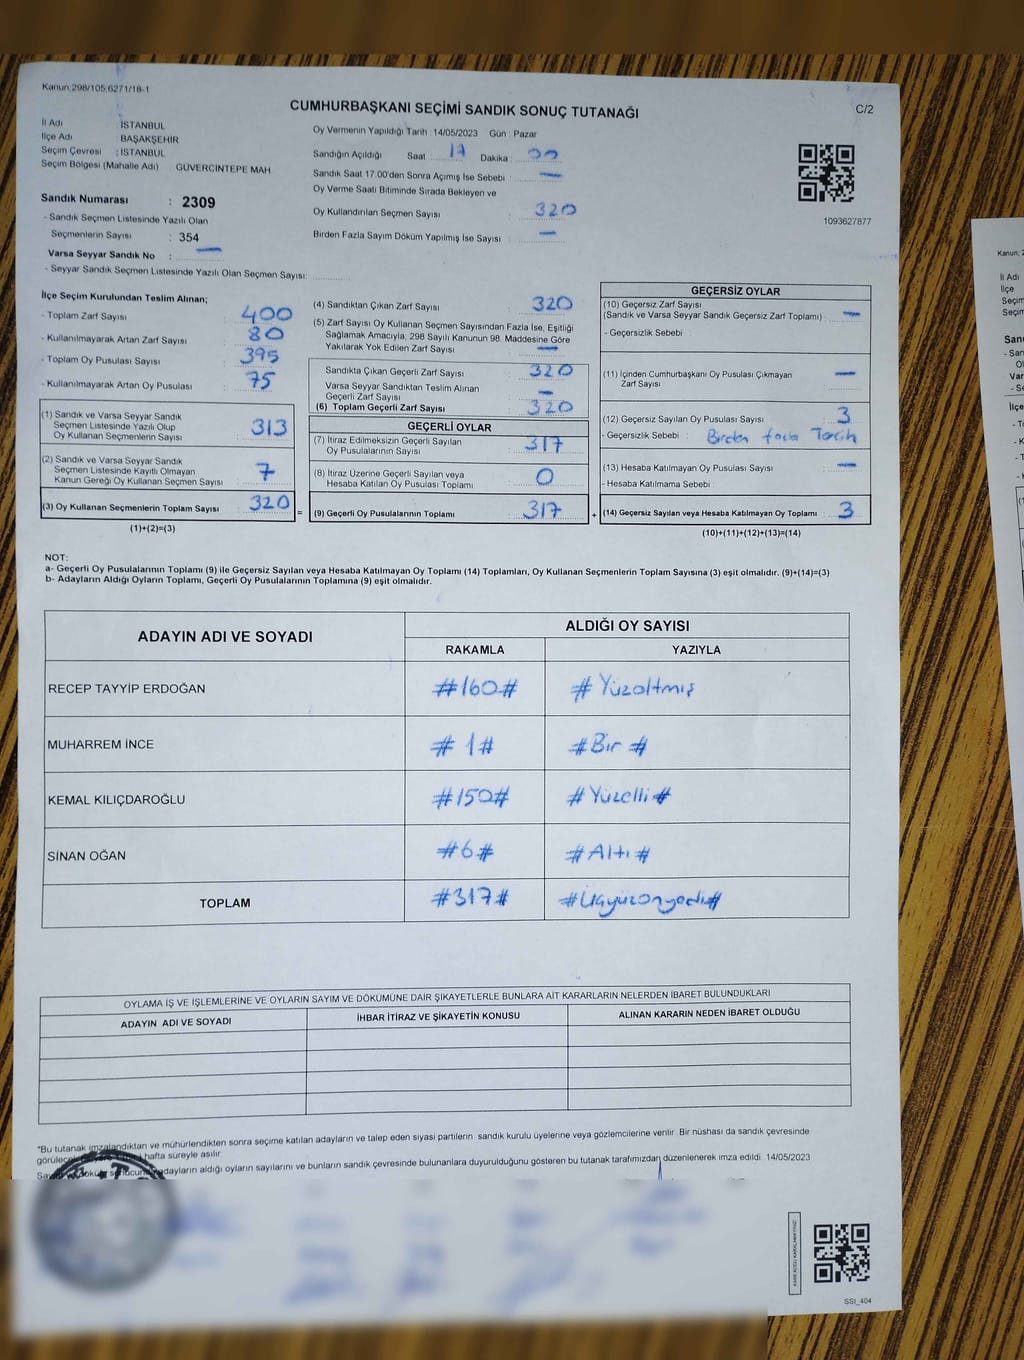 Kanun:298/105;6271/18-1
CUMHURBAŞKANI SEÇİMİ SANDIK SONUÇ TUTANAĞI
C/2
İl Adı : İSTANBUL
İlçe Adı : BAŞAKŞEHİR
Seçim Çevresi : İSTANBUL
Seçim Bölgesi (Mahalle Adı) : GÜVERCİNTEPE MAH
Oy Vermenin Yapıldığı Tarih : 14/05/2023 Gün : Pazar
Sandığın Açıldığı Saat : 17 Dakika :
Sandık Saat 17:00'den Sonra Açılmış İse Sebebi : —
Oy Verme Saati Bitiminde Sırada Bekleyen ve
Oy Kullandırılan Seçmen Sayısı : 320
Birden Fazla Sayım Döküm Yapılmış İse Sayısı : —
1093627877
Sandık Numarası : 2309
- Sandık Seçmen Listesinde Yazılı Olan
Seçmenlerin Sayısı : 354
Varsa Seyyar Sandık No : —
- Seyyar Sandık Seçmen Listesinde Yazılı Olan Seçmen Sayısı:
İlçe Seçim Kurulundan Teslim Alınan;
- Toplam Zarf Sayısı : 400
- Kullanılmayarak Artan Zarf Sayısı : 80
- Toplam Oy Pusulası Sayısı : 395
- Kullanılmayarak Artan Oy Pusulası : 75
(1) Sandık ve Varsa Seyyar Sandık
Seçmen Listesinde Yazılı Olup
Oy Kullanan Seçmenlerin Sayısı : 313
(2) Sandık ve Varsa Seyyar Sandık
Seçmen Listesinde Kayıtlı Olmayan
Kanun Gereği Oy Kullanan Seçmen Sayısı : 7
(3) Oy Kullanan Seçmenlerin Toplam Sayısı : 320
(1)+(2)=(3)
=
(4) Sandıktan Çıkan Zarf Sayısı : 320
(5) Zarf Sayısı Oy Kullanan Seçmen Sayısından Fazla İse, Eşitliği
Sağlamak Amacıyla, 298 Sayılı Kanunun 98. Maddesine Göre
Yakılarak Yok Edilen Zarf Sayısı : —
Sandıkta Çıkan Geçerli Zarf Sayısı : 320
Varsa Seyyar Sandıktan Teslim Alınan
Geçerli Zarf Sayısı : —
(6) Toplam Geçerli Zarf Sayısı : 320
GEÇERLİ OYLAR
(7) İtiraz Edilmeksizin Geçerli Sayılan
Oy Pusulalarının Sayısı : 317
(8) İtiraz Üzerine Geçerli Sayılan veya
Hesaba Katılan Oy Pusulası Toplamı : 0
(9) Geçerli Oy Pusulalarının Toplamı : 317
+
GEÇERSİZ OYLAR
(10) Geçersiz Zarf Sayısı
(Sandık ve Varsa Seyyar Sandık Geçersiz Zarf Toplamı) : —
- Geçersizlik Sebebi :
(11) İçinden Cumhurbaşkanı Oy Pusulası Çıkmayan
Zarf Sayısı : —
(12) Geçersiz Sayılan Oy Pusulası Sayısı : 3
- Geçersizlik Sebebi : Birden fazla Tercih
(13) Hesaba Katılmayan Oy Pusulası Sayısı : —
- Hesaba Katılmama Sebebi :
(14) Geçersiz Sayılan veya Hesaba Katılmayan Oy Toplamı : 3
(10)+(11)+(12)+(13)=(14)
NOT:
a- Geçerli Oy Pusulalarının Toplamı (9) ile Geçersiz Sayılan veya Hesaba Katılmayan Oy Toplamı (14) Toplamları, Oy Kullanan Seçmenlerin Toplam Sayısına (3) eşit olmalıdır. (9)+(14)=(3)
b- Adayların Aldığı Oyların Toplamı, Geçerli Oy Pusulalarının Toplamına (9) eşit olmalıdır.
ADAYIN ADI VE SOYADI
ALDIĞI OY SAYISI
RAKAMLA YAZIYLA
RECEP TAYYİP ERDOĞAN #160# #Yüzaltmış
MUHARREM İNCE #1# #Bir#
KEMAL KILIÇDAROĞLU #150# #Yüzelli#
SİNAN OĞAN #6# #Altı#
TOPLAM #317# #Üçyüzonyedi#
OYLAMA İŞ VE İŞLEMLERİNE VE OYLARIN SAYIM VE DÖKÜMÜNE DAİR ŞİKAYETLERLE BUNLARA AİT KARARLARIN NELERDEN İBARET BULUNDUKLARI
ADAYIN ADI VE SOYADI İHBAR İTİRAZ VE ŞİKAYETİN KONUSU ALINAN KARARIN NEDEN İBARET OLDUĞU
*Bu tutanak imzalandıktan ve mühürlendikten sonra seçime katılan adayların ve talep eden siyasi partilerin sandık kurulu üyelerine veya gözlemcilerine verilir. Bir nüshası da sandık çevresinde
hafta süreyle asılır.
adayların aldığı oyların sayılarını ve bunların sandık çevresinde bulunanlara duyurulduğunu gösteren bu tutanak tarafımızdan düzenlenerek imza edildi. 14/05/2023
SSI_404
Kanun: 2
İl Adı
İlçe